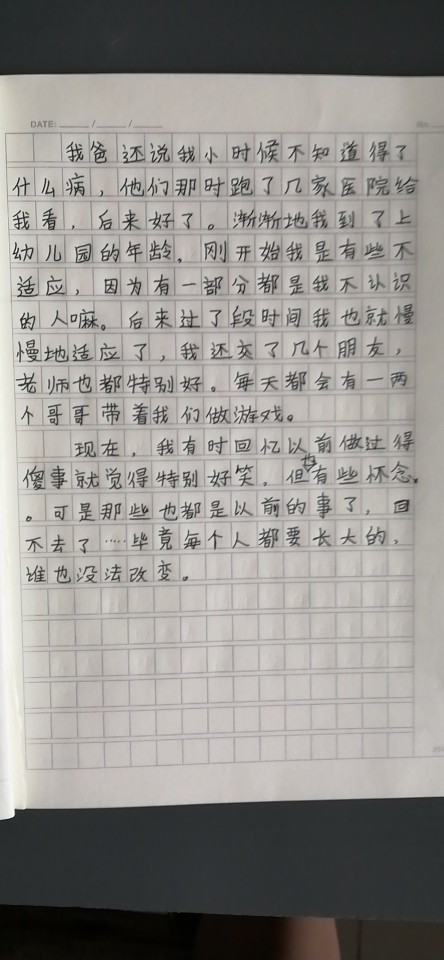 DATE: ____/____/____
我爸还说我小时候不知道得了
什么病，他们那时跑了几家医院给
我看，后来好了。渐渐地我到了上
幼儿园的年龄，刚开始我是有些不
适应，因为有一部分都是我不认识
的人嘛。后来过了段时间我也就慢
慢地适应了，我还交了几个朋友，
老师也都特别好。每天都会有一两
个哥哥带着我们做游戏。
现在，我有时回忆以前做过得
傻事就觉得特别好笑，但也有些怀念。
。可是那些也都是以前的事了，回
不去了……毕竟每个人都要长大的，
谁也没法改变。